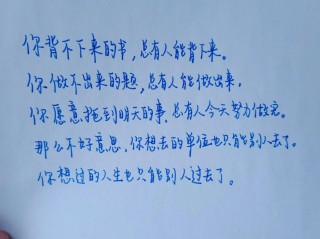 你背不下来的书，总有人能背下来。
你做不出来的题，总有人能做出来，
你愿意拖到明天的事，总有人今天努力做完。
那么不好意思，你想去的单位也只能别人去了。
你想过的人生也只能别人过去了。